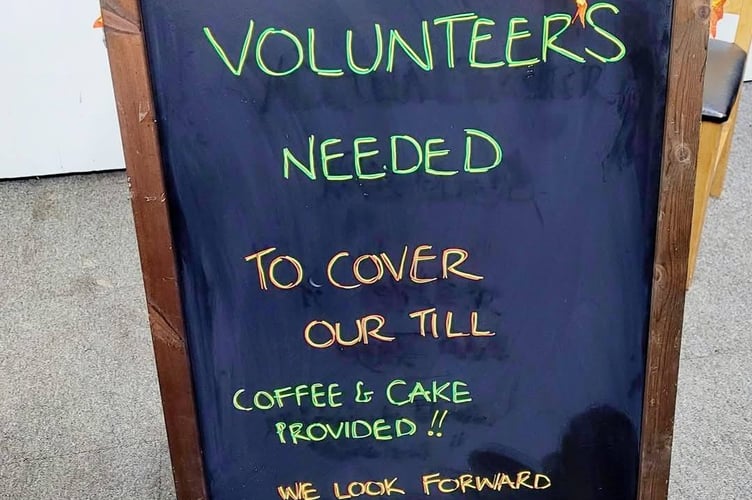 VOLUNTEER'S
NEEDED
TO COVER
OUR TILL
COFFEE & CAKE
PROVIDED !!
WE LOOK FORWARD